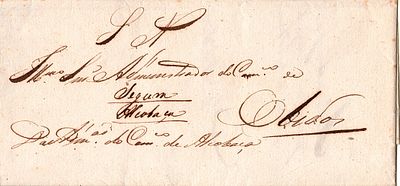 S N
Illmo Snr Administrador do Conco de
Segura
Alcobaça
Obidos
Do Adm.or do Conco de Alcobaça